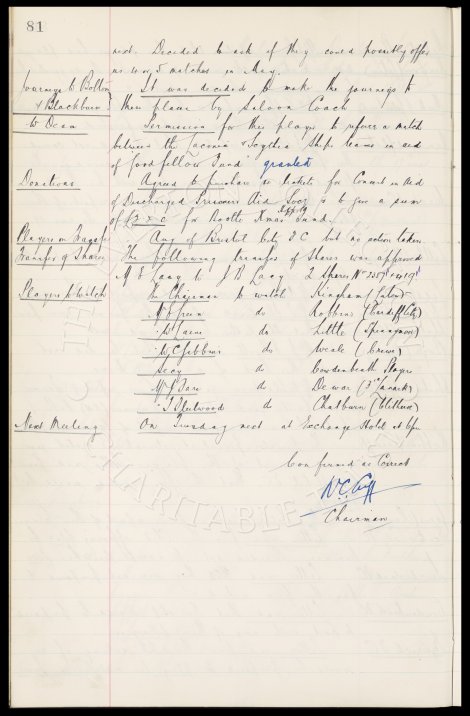 81
next. Decided to ask if they could possibly offer
us 4 or 5 matches in May.
Journeys to Bolton It was decided to make the journeys to
& Blackburn these places by Saloon Coach
W Dean Permission for this player to referee a match
between the Laconia & Scythia Ships teams in aid
of Good fellow Fund granted
Donations Agreed to purchase tickets for Concert in Aid
of Discharged Prisoners Aid Socy & to give a sum
of for Bootle Xmas Fund.
Players on Transfer of Bristol City F C but no action taken
Transfer of Shares The following transfer of Shares was approved
to J B 2 Shares No
Players to Watch The Chairman to watch Kingham (Luton)
Mr Green do Robbins (Cardiff City)
W do Little (Spennymoor)
W C Gibbins do Weale (Crewe)
Secy do Cowdenbeath Players
Mr do Dewar (3rd Lanark)
T Fleetwood do Chatburn (Clitheroe)
Next Meeting On Tuesday next at Exchange Hotel at
Confirmed as Correct
W.C. Cuff
Chairman
CHARITABLE